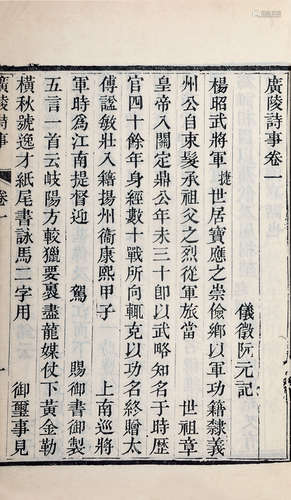 廣陵詩事卷一
儀徵阮元記
楊昭武將軍捷世居寶應之崇儉鄉以軍功籍隸義
州公自束髮承祖父之烈從軍旅當　世祖章
皇帝入關定鼎公年未三十卽以武略知名于時歷
官四十餘年身經數十戰所向輒克以功名終贈太
傅謚敏壯入籍揚州衞康熙甲子　上南巡將
軍時爲江南提督迎　駕　賜御書御製
五言一首云岐陽方較獵要裹盡龍媒仗下黃金勒
橫秋號逸才紙尾書詠馬二字用　御璽事見
廣陵詩事　卷一　一